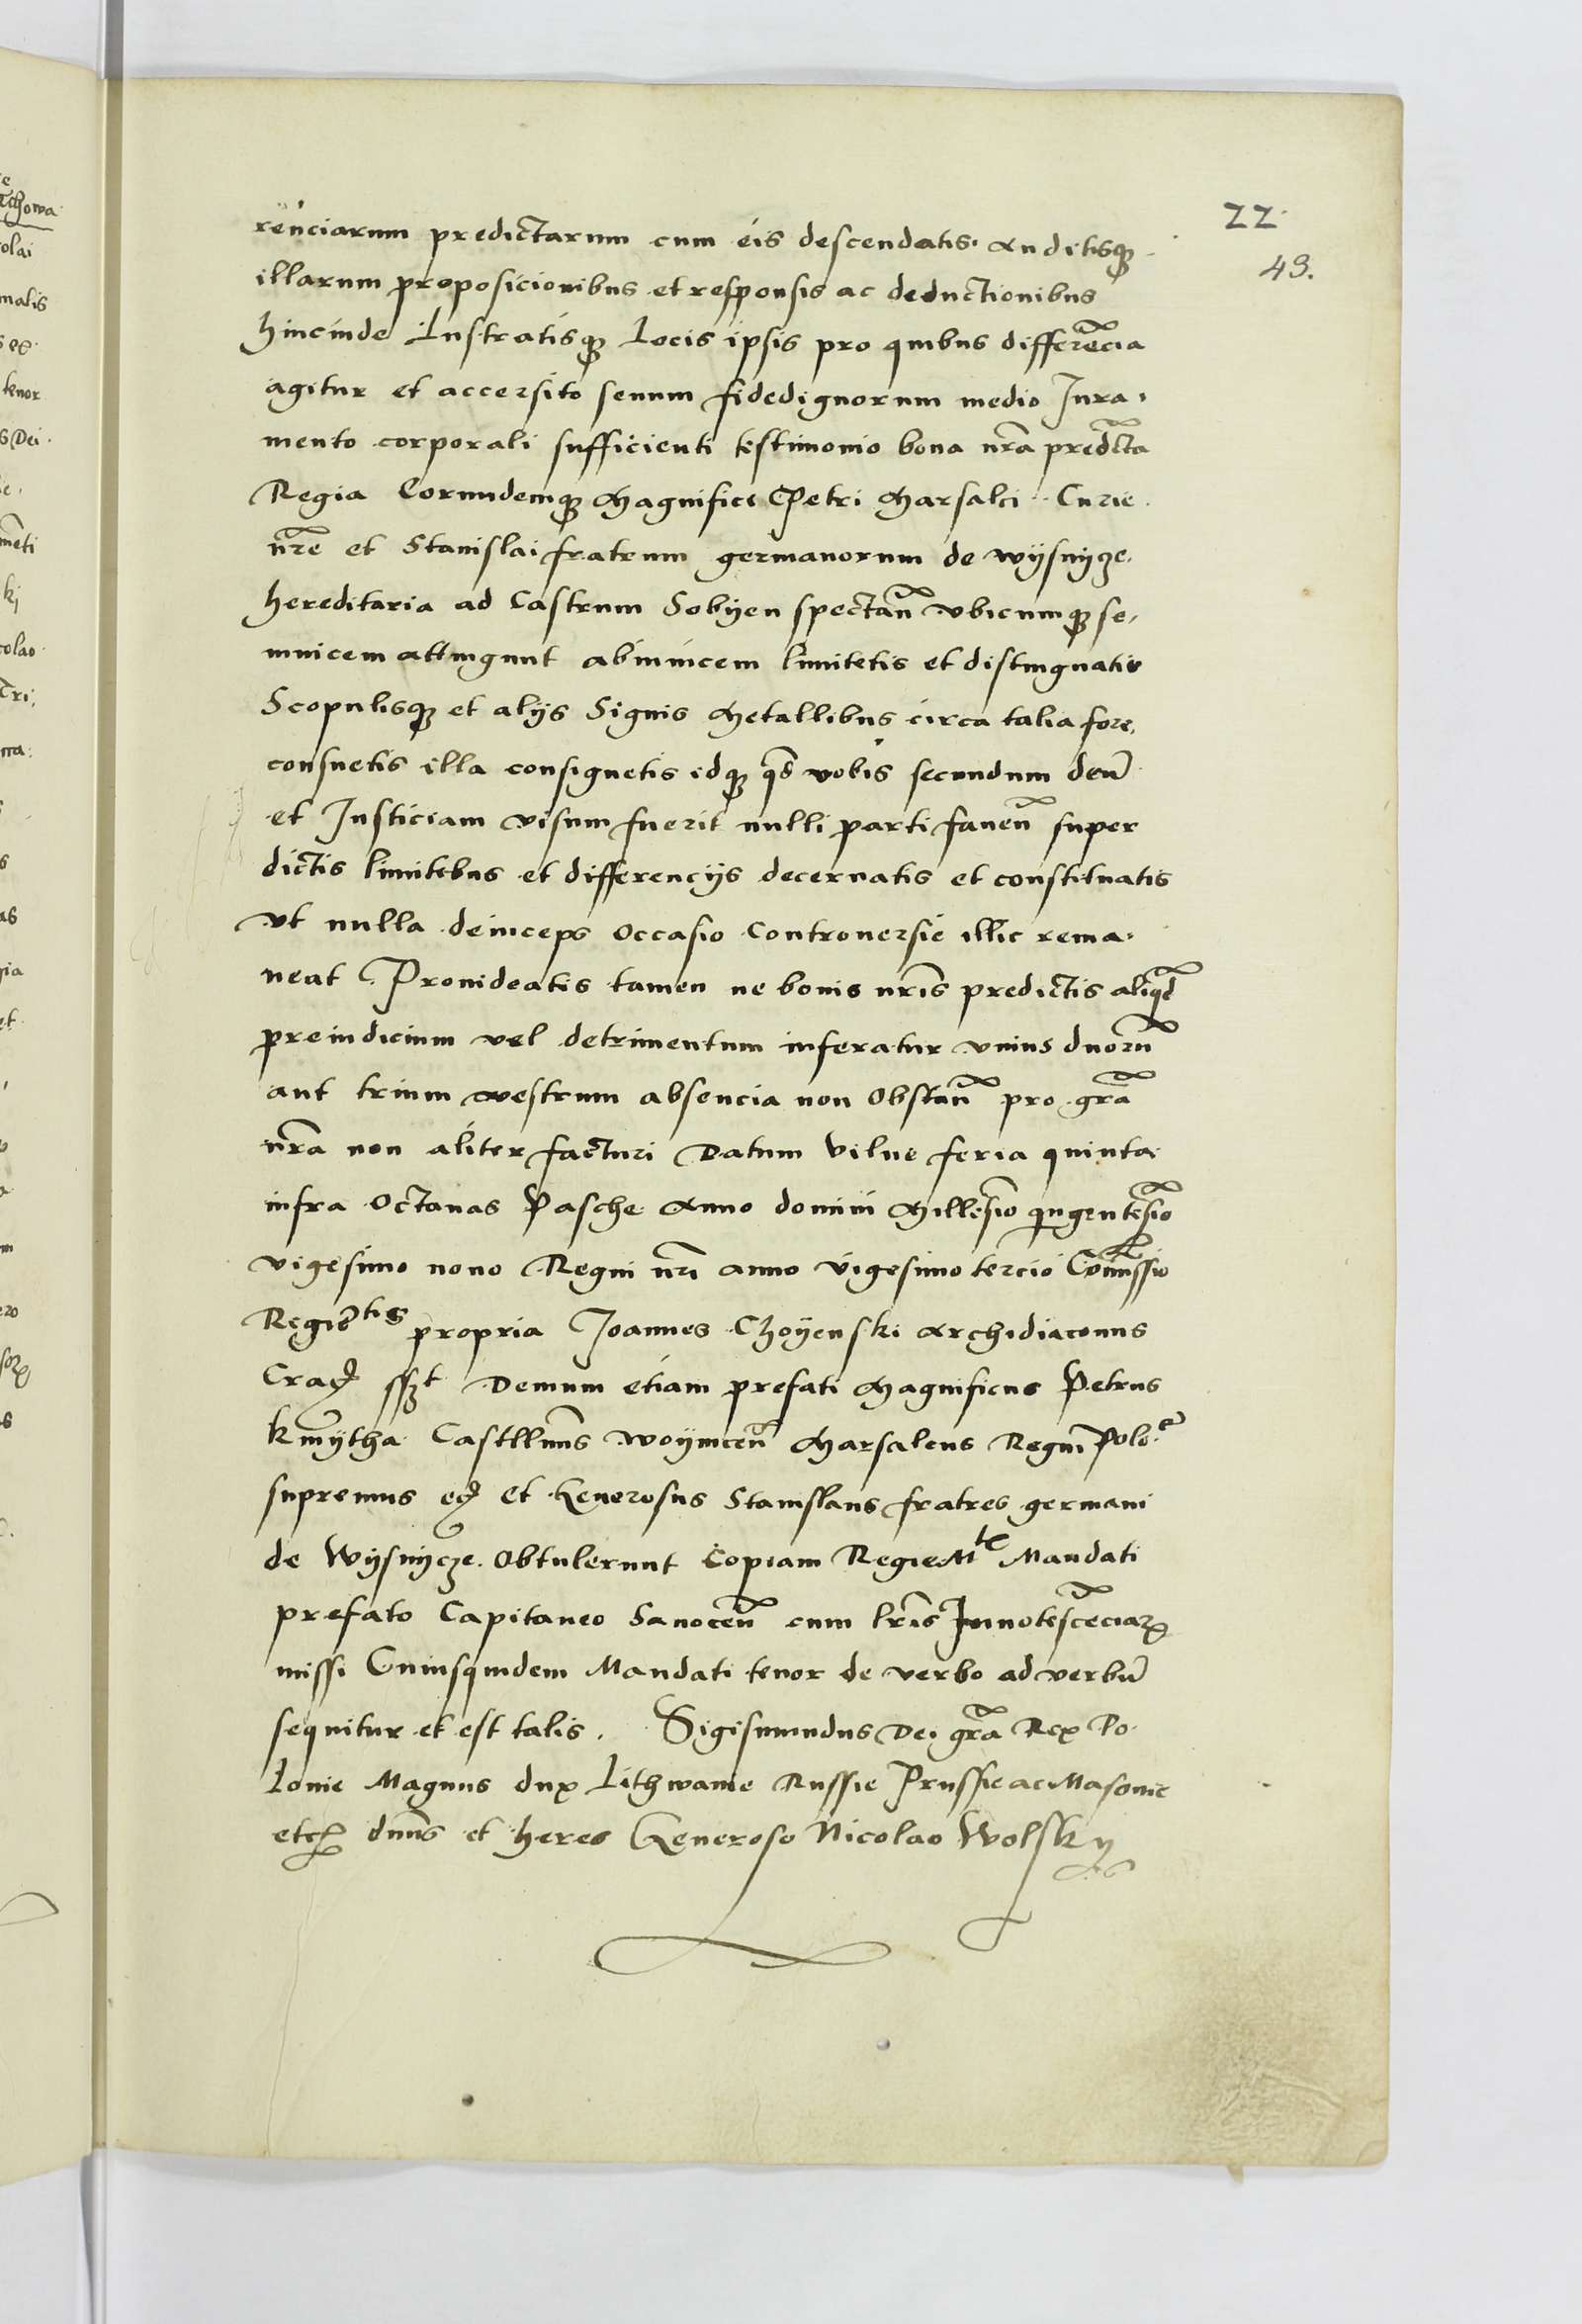 22.
49.
renciarum predictarum cum eis descendatis. Auditisq3
illarum proposicionibus et responsis ac deductionibus
hincinde Lustratisq3 Locis ipsis pro quibus differẽcia
agitur et accersito senum fidedignorum medio Jura,
mento corporali sufficienti testimonio bona nr̃a predc̃ta
Regia Eorundemq3 Magnifici Petri Marsalci Curie
nr̃e et Stanislai fratrum germanorum de wÿsnÿcze
hereditaria ad Castrum Sobÿen spectañ vbicumq3 se,
inuicem attingunt abinuicem limitetis et distinguatis
Scopulisq3 et alijs Signis Metallibus circa talia fore,
consuetis illa consignetis idq3 qd̃ vobis secundum deũ
et Justiciam visum fuerit nulli parti faueñ super
dictis limitibus et differencijs decernatis et constituatis
vt nulla deinceps Occasio Controuersie illic rema,
neat Prouideatis tamen ne bonis nr̃is predictis aliqd̃
preiudicium vel detrimentum inferatur vnius duorũ
aut trium vestrum absencia non Obstañ pro gr̃a
nr̃a non aliter facturi Datum Vilne feria quinta
infra Octauas Pasche Anno domini Millesĩo qingentesĩo
vigesimo nono Regni nr̃i anno vigesimo tercio Com̃issio
Regie Mtis propria Joannes Choÿenski Archidiaconus
Crac sszt Demum etiam prefati Magnificus Petrus
kmÿtha Castllnũs woÿniceñ Marsalcus Regni Poloe
supremus etc et Generosus Stanislaus fratres germani
de Wÿsnÿcze. Obtulerunt Copiam Regie Mte Mandati
prefato Capitaneo Sanoceñ cum lr̃is Innotescẽciar
missi Cuiusquidem Mandati tenor de verbo ad verbũ
sequitur et est talis. Sigismundus Dei gr̃a Rex Po
lonie Magnus dux Lithwanie Russie Prussie ac Masouie
etc dnũs et heres Generoso Nicolao Wolsky